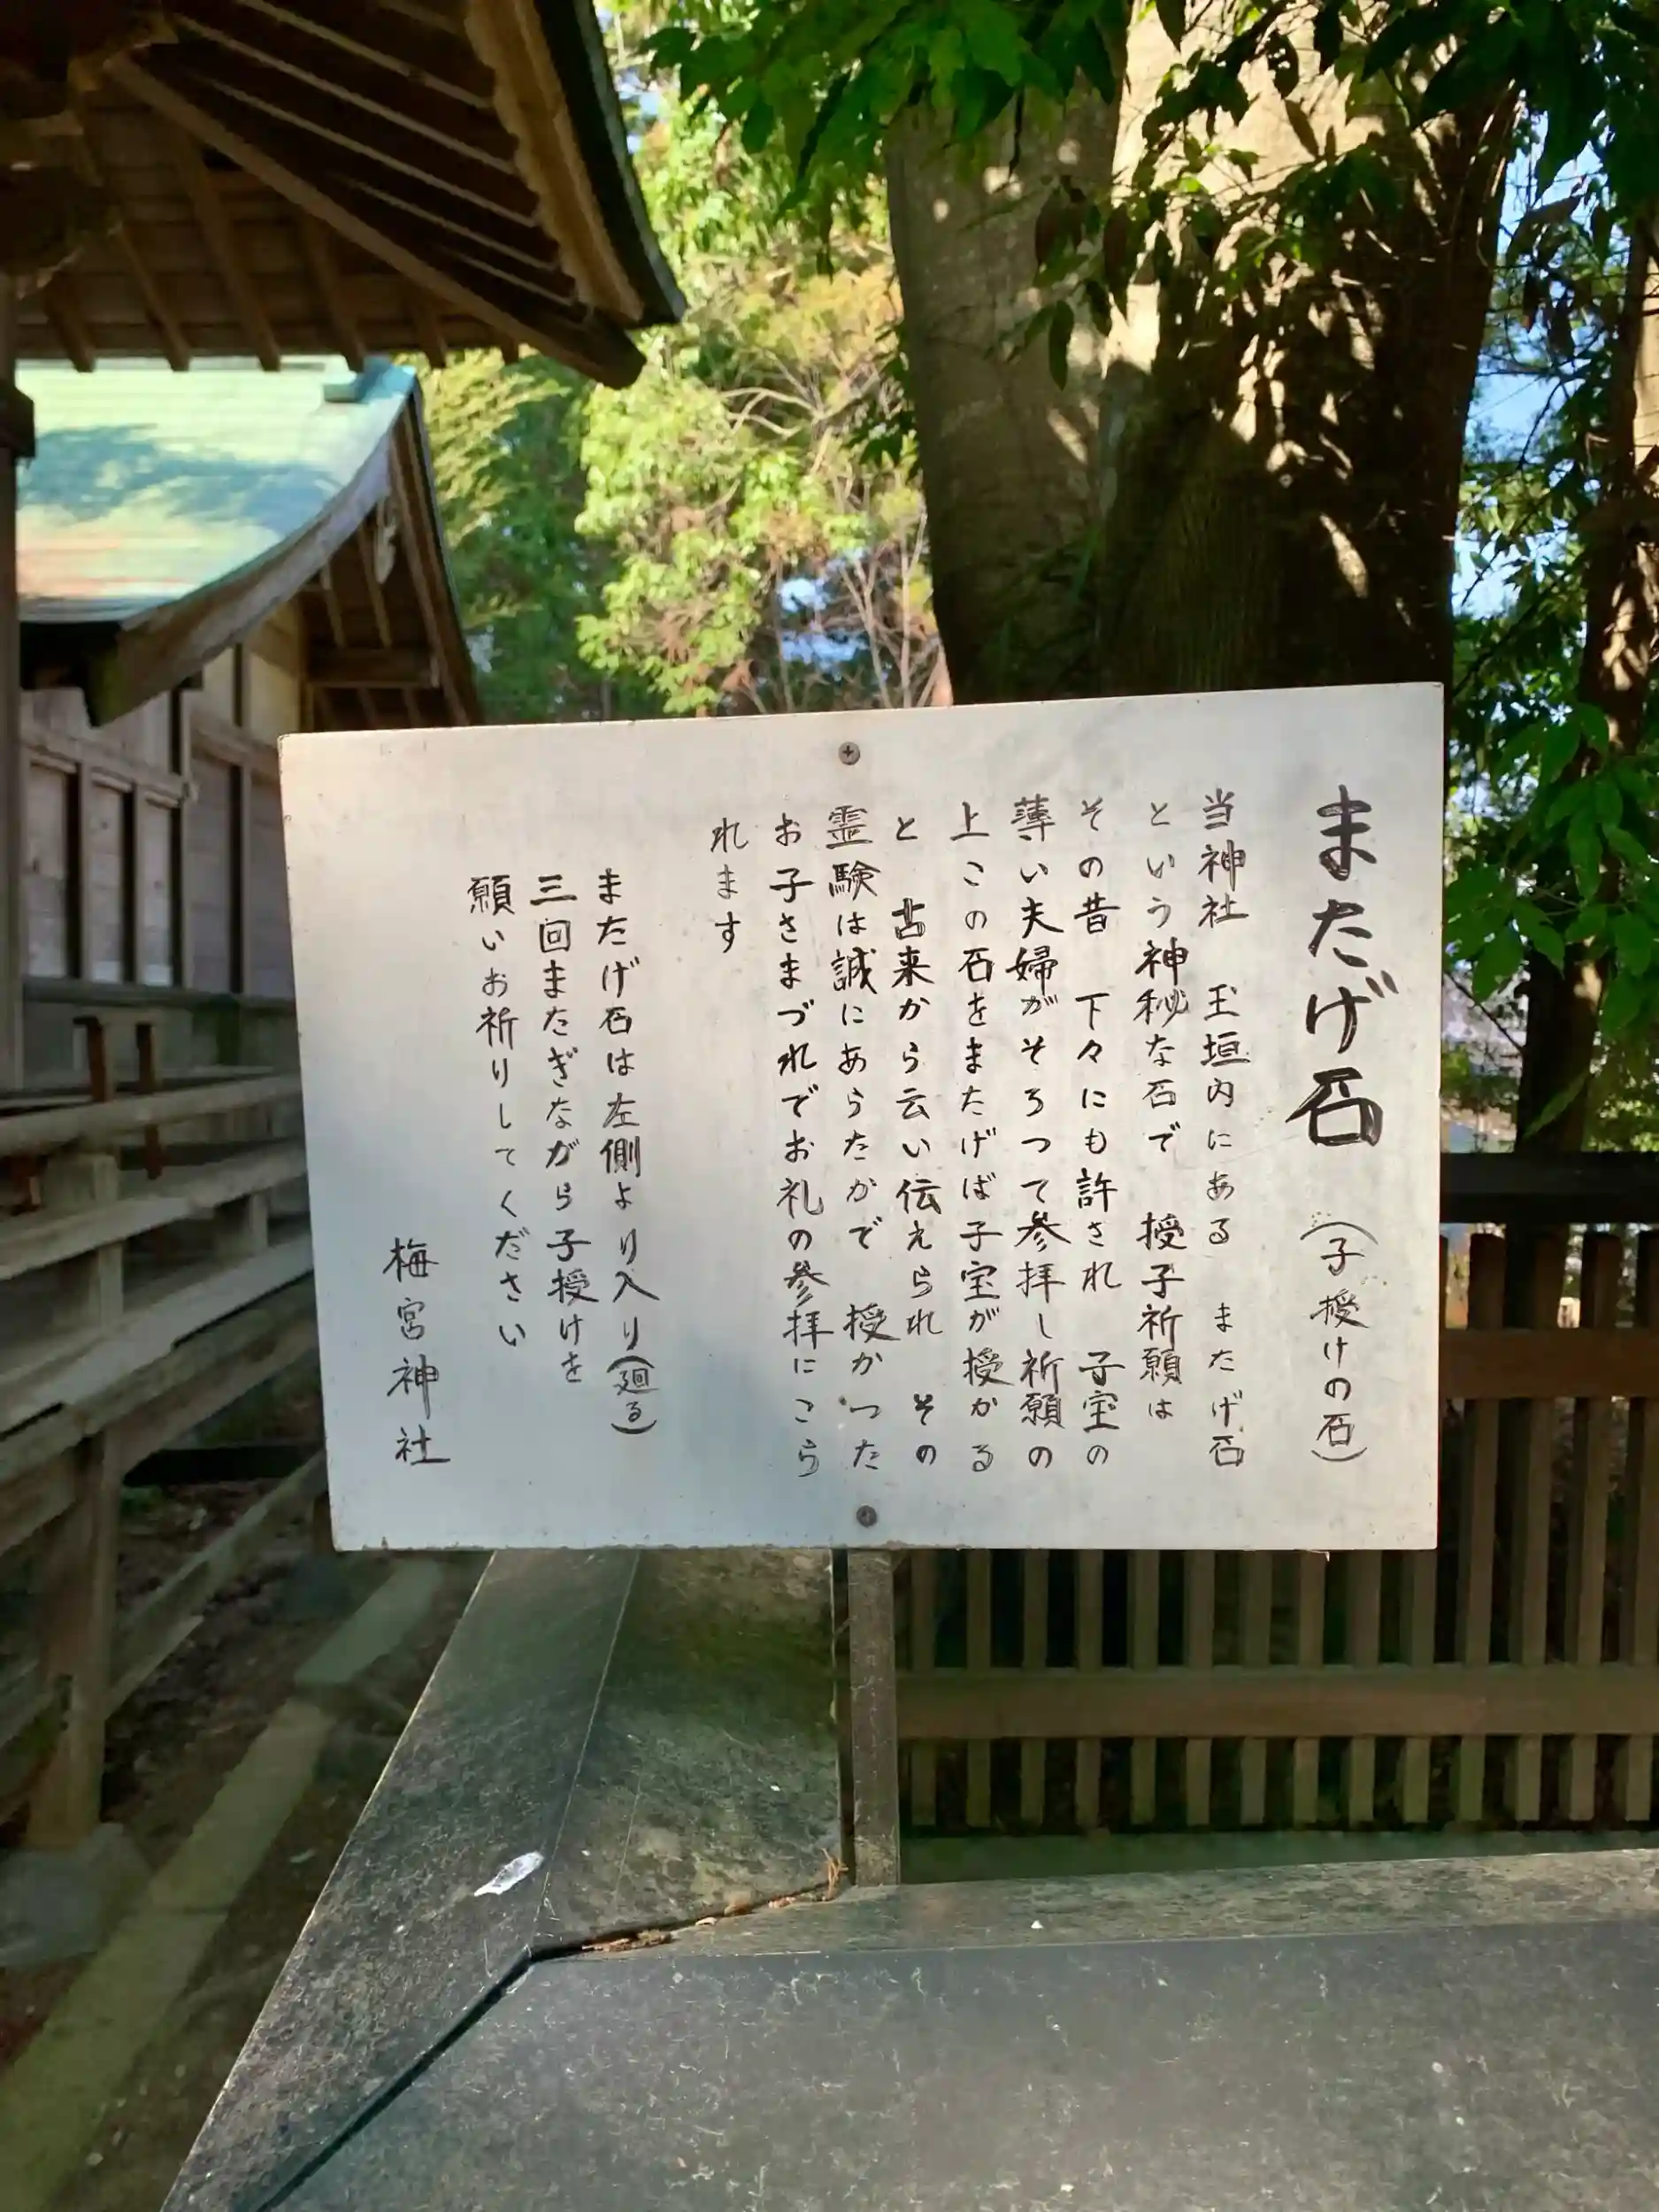 またげ石 (子授けの石)
当神社 玉垣内にある またげ石
という神秘な石で 授子祈願は
その昔 下々にも許され 子宝の
薄い夫婦がそろつて参拝し祈願の
上この石をまたげば子宝が授かる
と 古来から云い伝えられ その
霊験は誠にあらたかで 授かつた
お子さまづれでお礼の参拝にこら
れます
またげ石は左側より入り(廻る)
三回またぎながら子授けを
願いお祈りしてください
梅宮神社